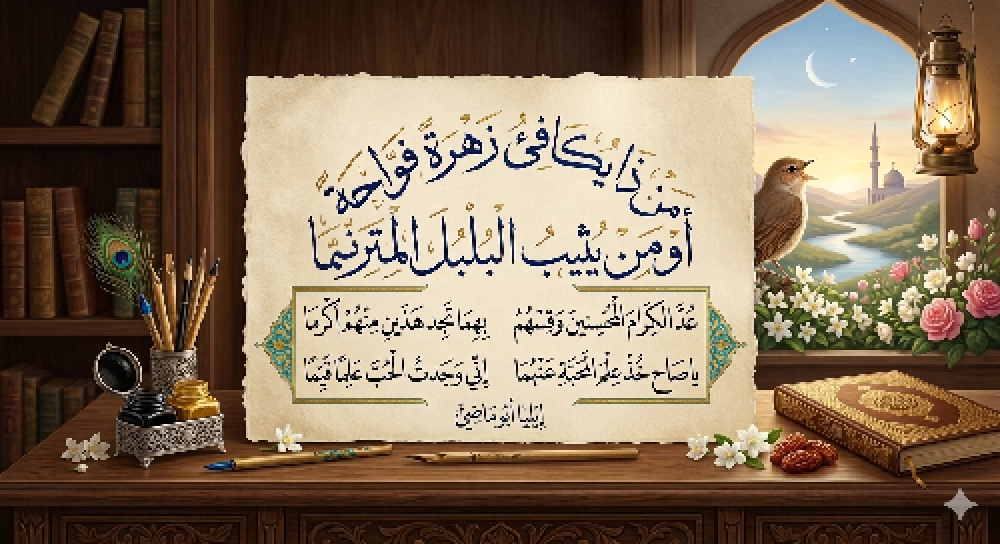 أمن ذا يكافئ زهرة فواحة
أو من يثيب البلبل المترنما
عد الكرام المحسنين وقسهم بهما تجد هذين منهم أكرما
يا صاح خذ علم المحبة عنهما إني وجدت الحب علما قيما
إيليا أبو ماضي